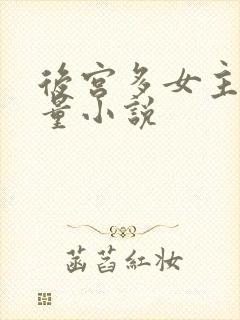 後宮多女主
量小說
菡萏紅妝